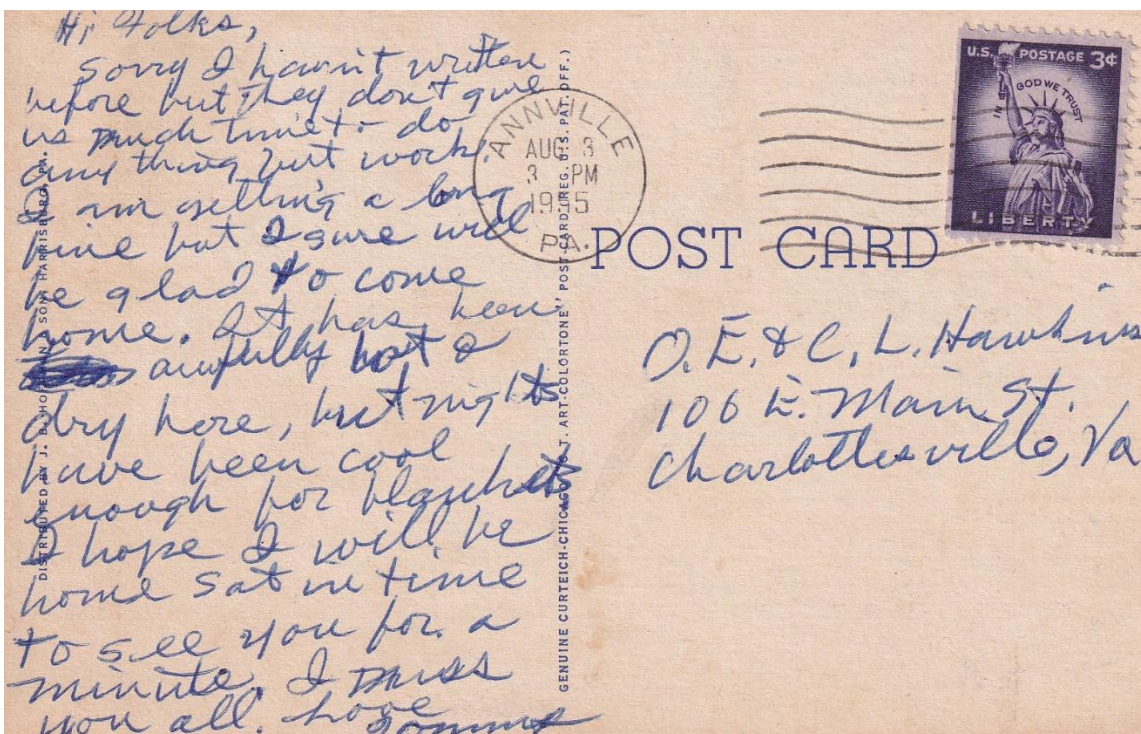 Hi Folks,
Sorry I havn't written
before but they don't give
us much time to do
any thing but work.
I am getting a long
fine but I sure will
be glad to come
home. It has been
awfully hot &
dry here, but nights
have been cool
enough for blankets
I hope I will be
home Sat in time
to see you for a
minute. I miss
you all. Love
Tommy
DISTRIBUTED BY J. B. HOFFMAN & SON, HARRISBURG, PA.
GENUINE CURTEICH-CHICAGO "C.T. ART-COLORTONE" POST CARD (REG. U.S. PAT. OFF.)
ANNVILLE
AUG 3
3 PM
1955
PA.
U.S. POSTAGE 3¢
IN GOD WE TRUST
LIBERTY
POST CARD
O. E. & C. L. Hawkins
106 E. Main St.
Charlottesville, Va